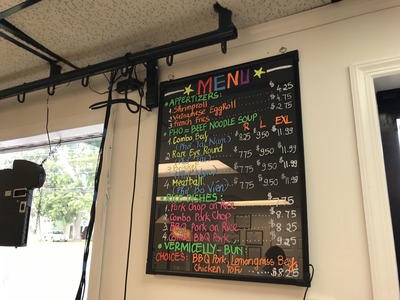 MENU
APPETIZERS:
1. Shrimproll $4.25
2. Vietnamese EggRoll $4.75
3. French Fries $2.75
PHO = BEEF NOODLE SOUP
R L EXL
1. Combo Beef 8.25 9.50 $11.99
2. Rare Eye Round 7.75 9.50 $11.99
7.75 9.50 $11.99
4. Meatball 7.75 9.50 $11.99
(Pho Bo Vien)
RICE DISHES:
1. Pork Chop on Rice $7.75
2. Combo Pork Chop $8.75
3. BBQ Pork on Rice $8.25
4. Combo BBQ Pork $9.25
VERMICELLY - BUN:
CHOICES: BBQ Pork, Lemongrass Beef,
Chicken, Tofu $8.25